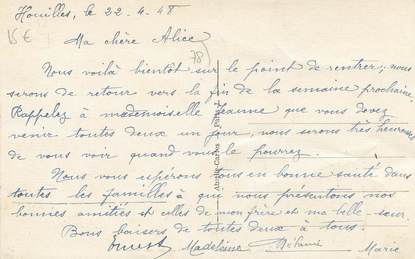 Houilles, le 22-4-48
15€
Ma chère Alice
78
Nous voilà bientôt sur le point de rentrer; nous
serons de retour vers la fin de la semaine prochaine
Rappelez à mademoiselle Jeanne que vous devez
venir toutes deux un jour, nous serons très heureuses
de vous voir quand vous le pourrez.
Nous vous espérons tous en bonne santé dans
toutes les familles à qui nous présentons nos
bonnes amitiés et celles de mon frère et ma belle-sœur.
Bons baisers de toutes deux à tous.
Ernest Madeleine Mélanie Marie